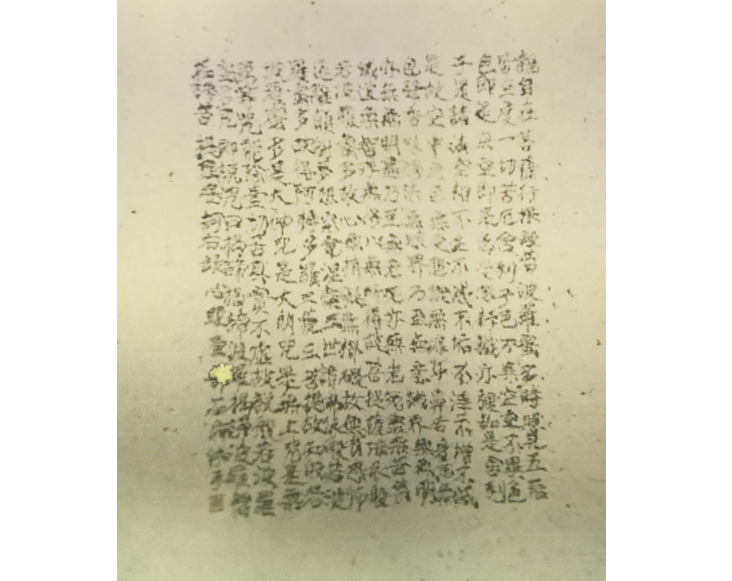 觀自在菩薩行深般若波羅蜜多時照見五蘊
皆空度一切苦厄舍利子色不異空空不異色
色即是空空即是色受想行識亦復如是舍利
子是諸法空相不生不滅不垢不淨不增不減
是故空中無色無受想行識無眼耳鼻舌身意無
色聲香味觸法無眼界乃至無意識界無無明
亦無無明盡乃至無老死亦無老死盡無苦集
滅道無智亦無得以無所得故菩提薩埵依般
若波羅蜜多故心無罣礙無罣礙故無有恐怖
遠離顛倒夢想究竟涅槃三世諸佛依般若波
羅蜜多故得阿耨多羅三藐三菩提故知般若
波羅蜜多是大神咒是大明咒是無上咒是無
等等咒能除一切苦真實不虛故說般若波羅
蜜多咒即說咒曰揭諦揭諦波羅揭諦波羅僧
揭諦菩提薩婆訶右錄心經